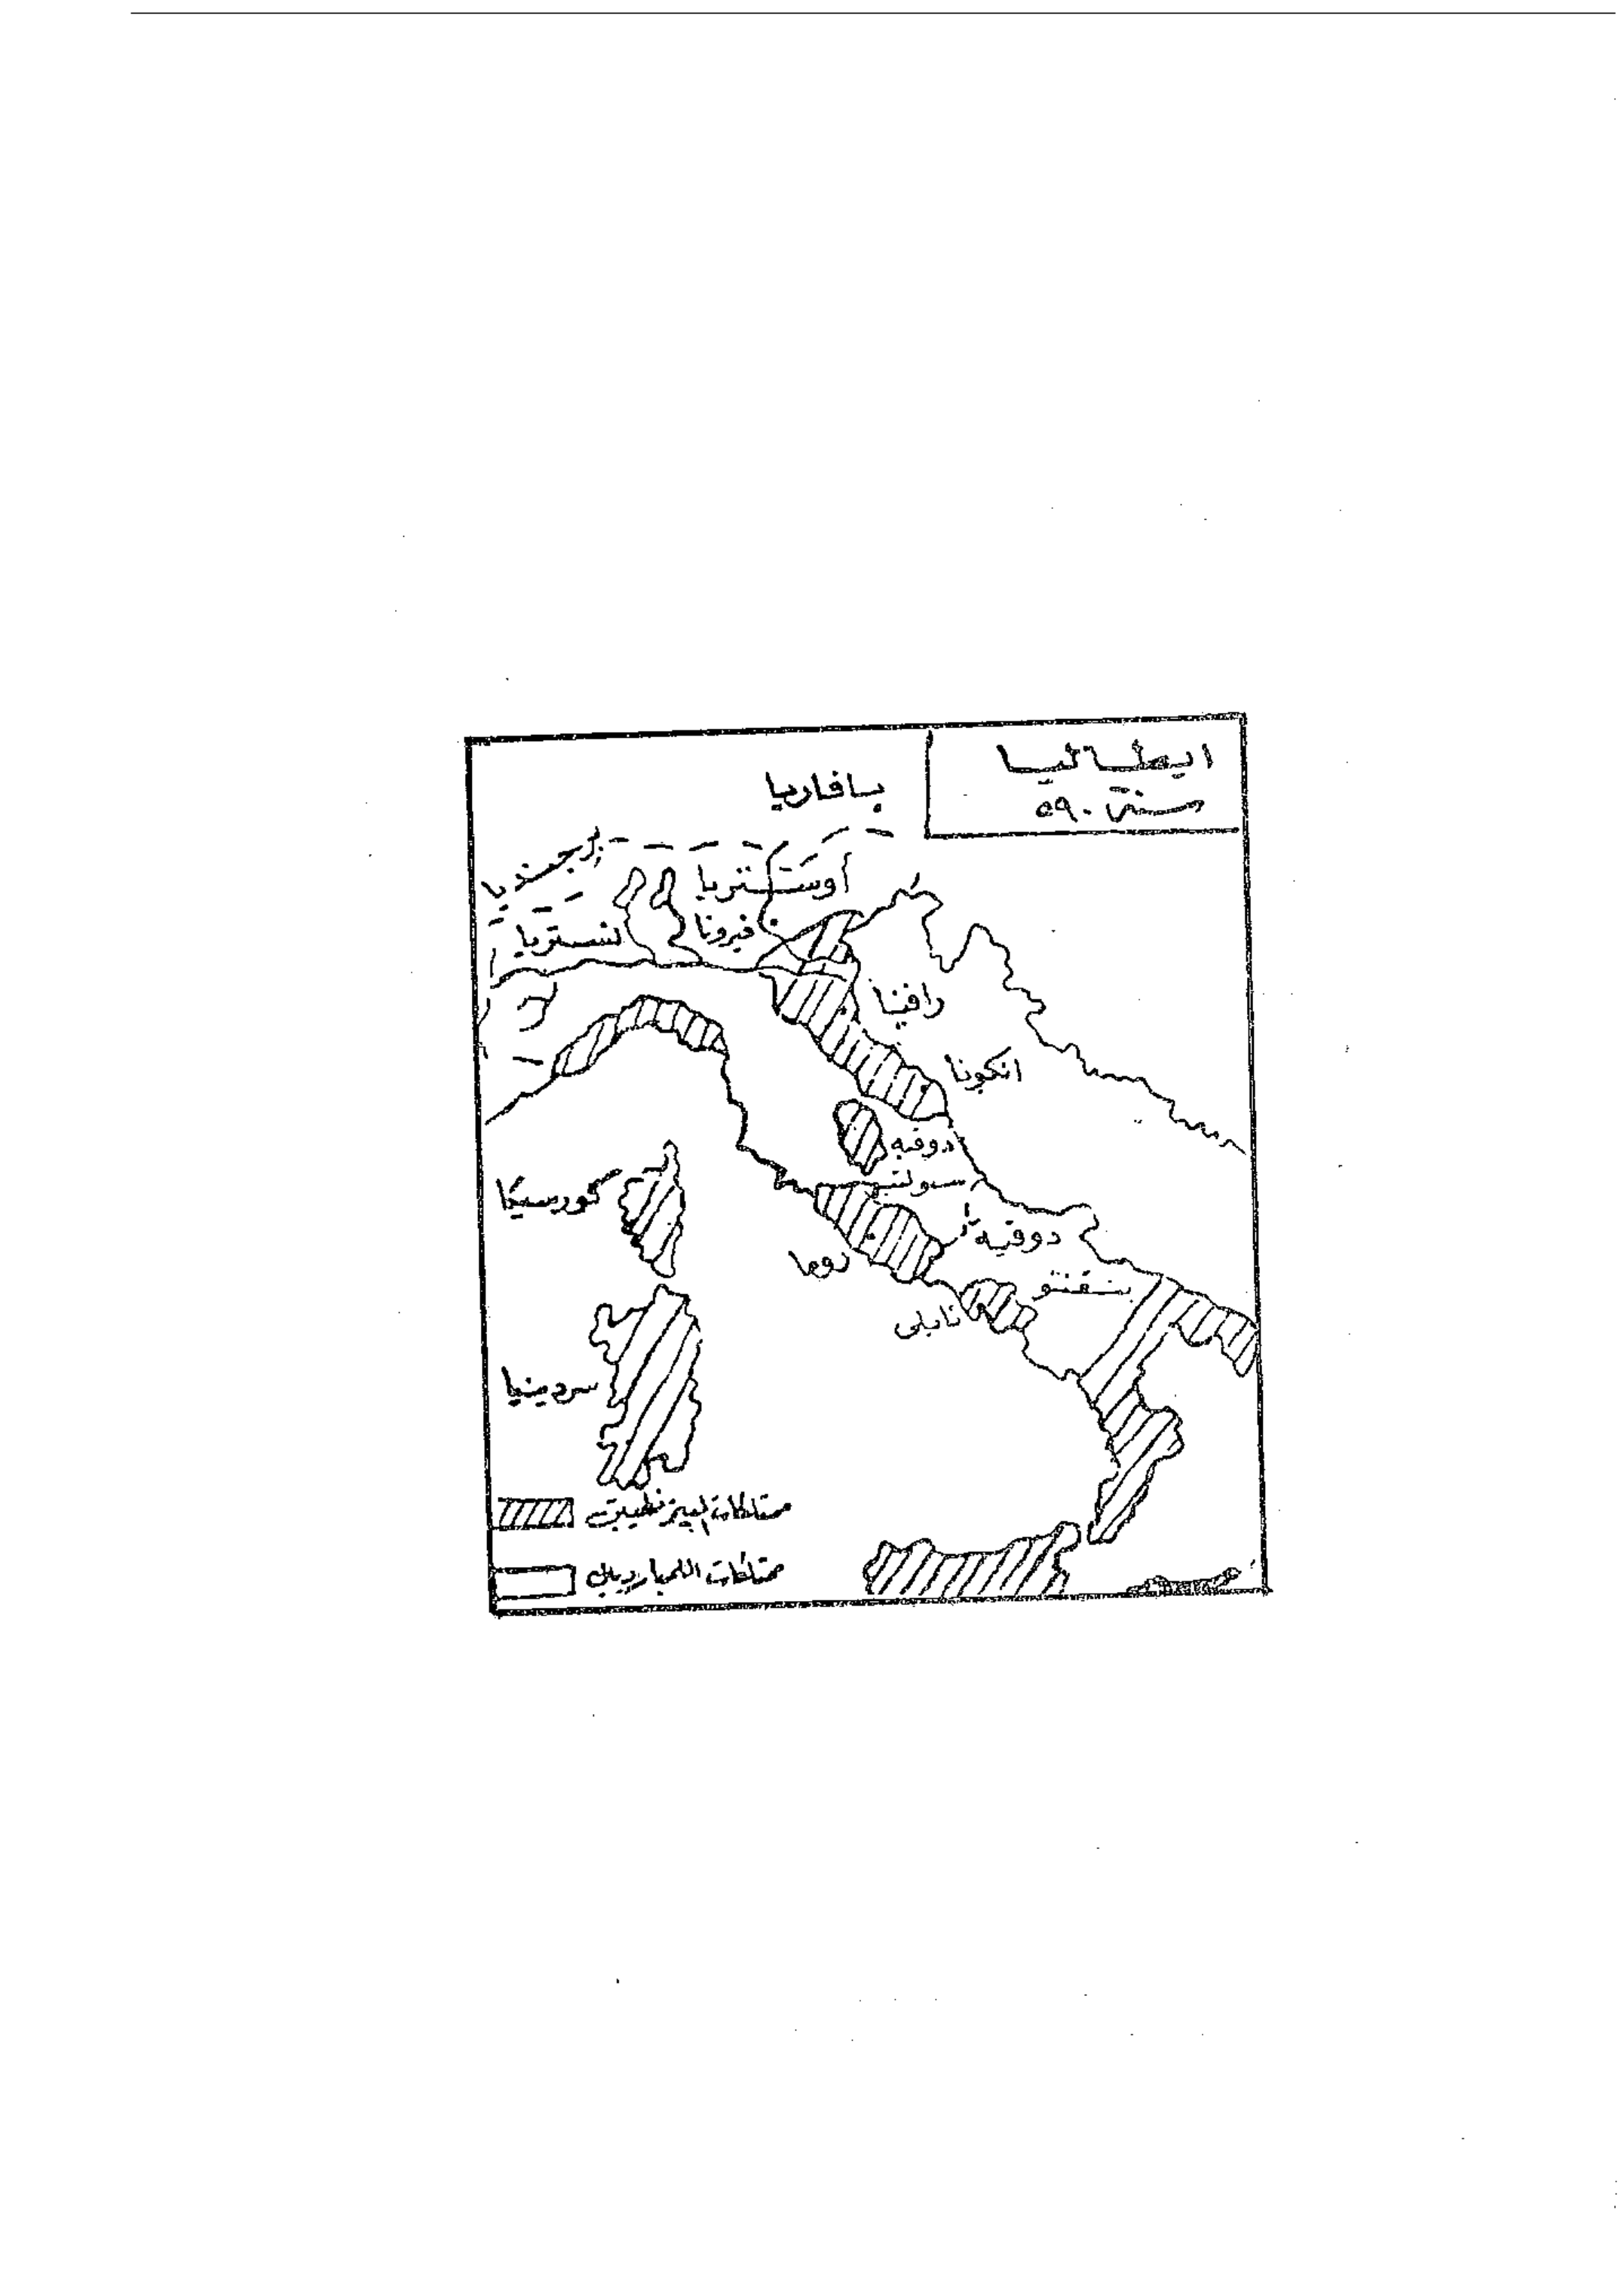 ايطاليا
سنة ٥٩٠
بافاريا
برجنديا
أوستتريا
نستريا
فيرونا
رافينا
انكونا
دوقيه
سولتيو
كورسيكا
دوقيه
روما
بنفنتو
نابلى
سردينيا
ممتلكات البيزنطيين
ممتلكات اللمبارديين